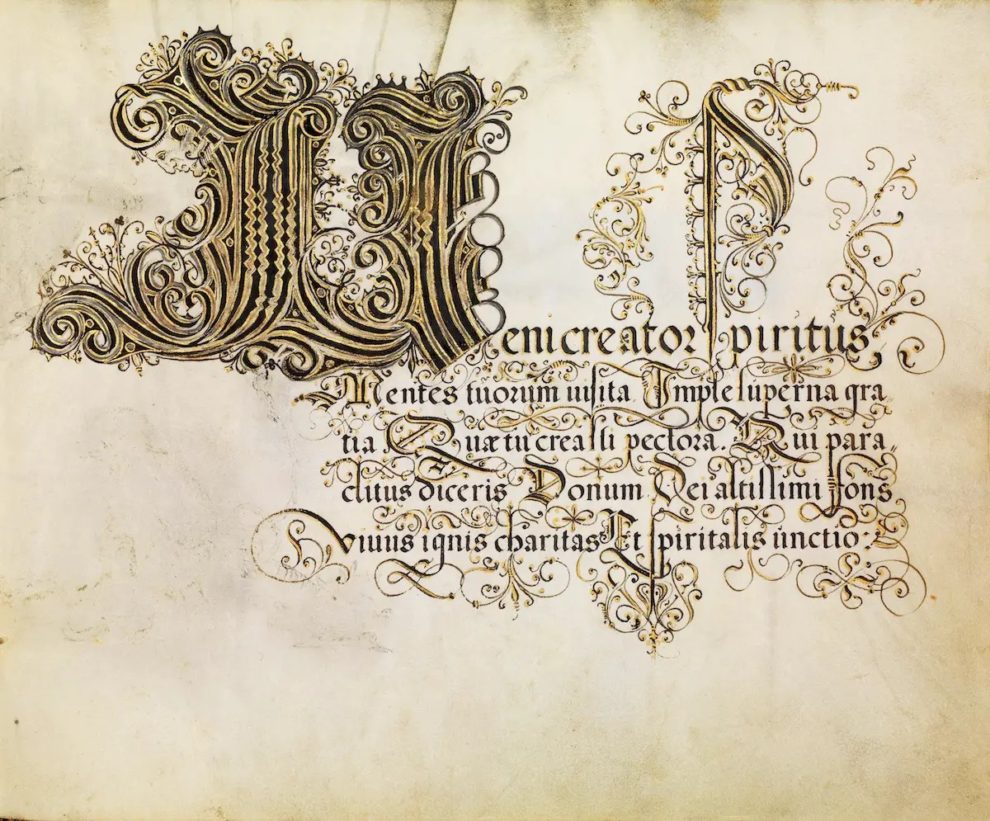 Veni creator Spiritus,
Mentes tuorum uisita. Imple superna gra
tia Quæ tu creasti pectora. Qui para
clitus diceris Donum Dei altissimi fons
Viuus ignis charitas Et spiritalis unctio: